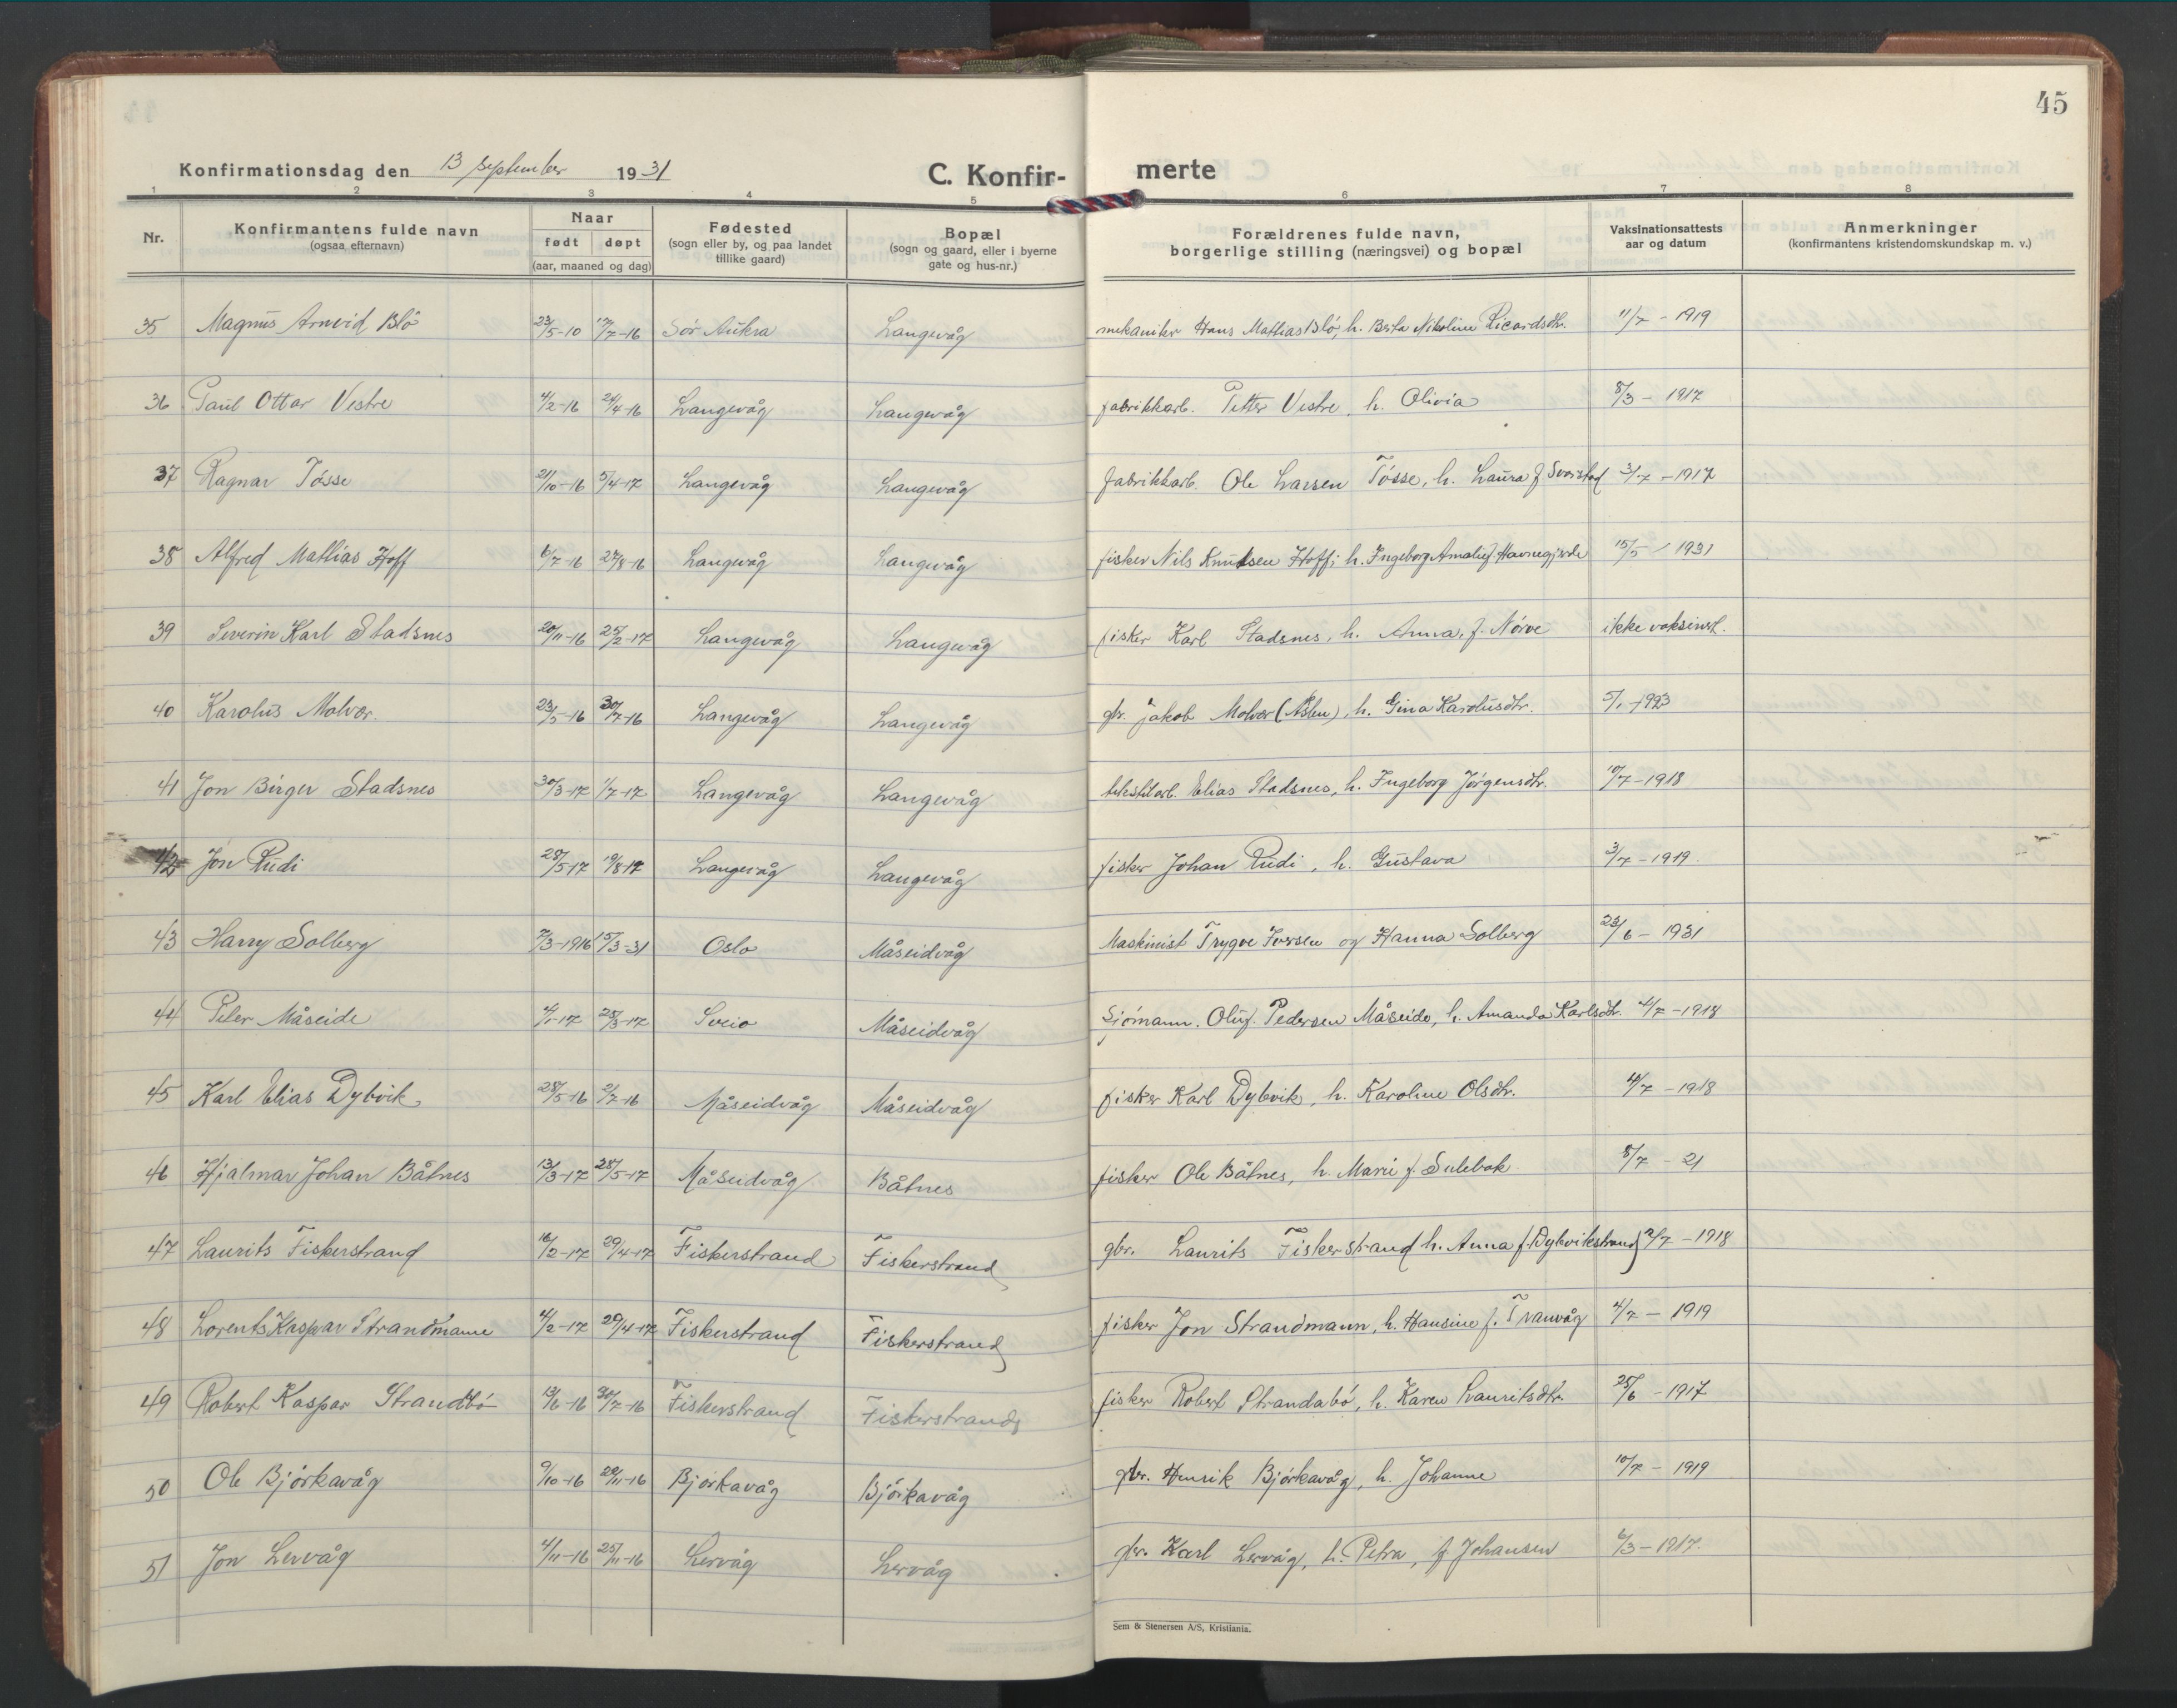 45
Konfirmationsdag den 13 september 1931 C. Konfir- merte
1 2 3 4 5 6 7 8
Nr. Konfirmantens fulde navn (ogsaa efternavn) Naar født døpt (aar, maaned og dag) Fødested (sogn eller by, og paa landet tillike gaard) Bopæl (sogn og gaard, eller i byerne gate og hus-nr.) Forældrenes fulde navn, borgerlige stilling (næringsvei) og bopæl Vaksinationsattests aar og datum Anmerkninger (konfirmantens kristendomskundskap m. v.)
35 Magnus Arnvid Blö 23/5-10 17/7-16 Sör Aukra Langevåg mekaniker Hans Mathias Blö, h. Berta Nikoline Ricardsdtr. 11/7 - 1919
36 Paul Ottar Vestre 4/2-16 24/4-16 Langevåg Langevåg fabrikkarb. Petter Vestre, h. Olivia 8/3 - 1917
37 Ragnar Tösse 21/10-16 5/4-17 Langevåg Langevåg fabrikkarb. Ole Larsen Tösse, h. Laura f. 3/7 - 1917
38 Alfred Mathias Hoff 6/7-16 27/8-16 Langevåg Langevåg fisker Nils Knutsen Hoff, h. Ingeborg Amalie f. Havnegjerde 15/5 - 1931
39 Severin Karl Stadsnes 20/11-16 25/2-17 Langevåg Langevåg fisker Karl Stadsnes, h. Anna, f. Nörve ikke vaksinert.
40 Karolus Molvær. 23/5-16 30/7-16 Langevåg Langevåg gbr. Jakob Molvær, h. Gina Karolusdtr. 5/1 - 1923
41 Jon Birger Stadsnes 30/3-17 1/7-17 Langevåg Langevåg tekstilarb. Elias Stadsnes, h. Ingeborg Jörgensdtr. 10/7 - 1918
42 Jon Rudi 28/5-17 19/8-17 Langevåg Langevåg fisker Johan Rudi, h. Gustava 3/7 - 1919.
43 Harry Solberg 7/3-1916 15/3-31 Oslo Måseidvåg Maskinist Trygve Iversen og Hanna Solberg 23/6 - 1931
44 Peter Måseide 4/1-17 25/3-17 Sveio Måseidvåg Sjömann. Oluf. Pedersen Måseide, h. Amanda Karlsdtr. 4/7 - 1918
45 Karl Elias Dybvik 28/5-16 2/7-16 Måseidvåg Måseidvåg fisker Karl Dybvik, h. Karoline Olsdtr. 4/7 - 1918
46 Hjalmar Johan Båtnes 13/3-17 28/5-17 Måseidvåg Båtnes fisker Ole Båtnes, h. Marie f. Sulebak 8/7 - 21
47 Laurits Fiskerstrand 16/2-17 29/4-17 Fiskerstrand Fiskerstrand gbr. Laurits Fiskerstrand h. Anna f. Dybvikstrand 2/7 - 1918
48 Lorents Kaspar Strandmann 4/2-17 29/4-17 Fiskerstrand Fiskerstrand fisker Jon Strandmann, h. Hansine f. Tranvåg 4/7 - 1919
49 Robert Kaspar Strandbö 13/6-16 30/7-16 Fiskerstrand Fiskerstrand fisker Robert Strandabö, h. Karen Lauritsdtr. 25/6 - 1917
50 Ole Björkavåg 9/10-16 20/11-16 Björkavåg Björkavåg gbr. Henrik Björkavåg, h. Johanne 10/7 - 1919
51 Jon Lervåg 4/11-16 25/11-16 Lervåg Lervåg gbr. Karl Lervåg, h. Petra, f. Johansen 6/3 - 1917.
Sem & Stenersen A/S, Kristiania.